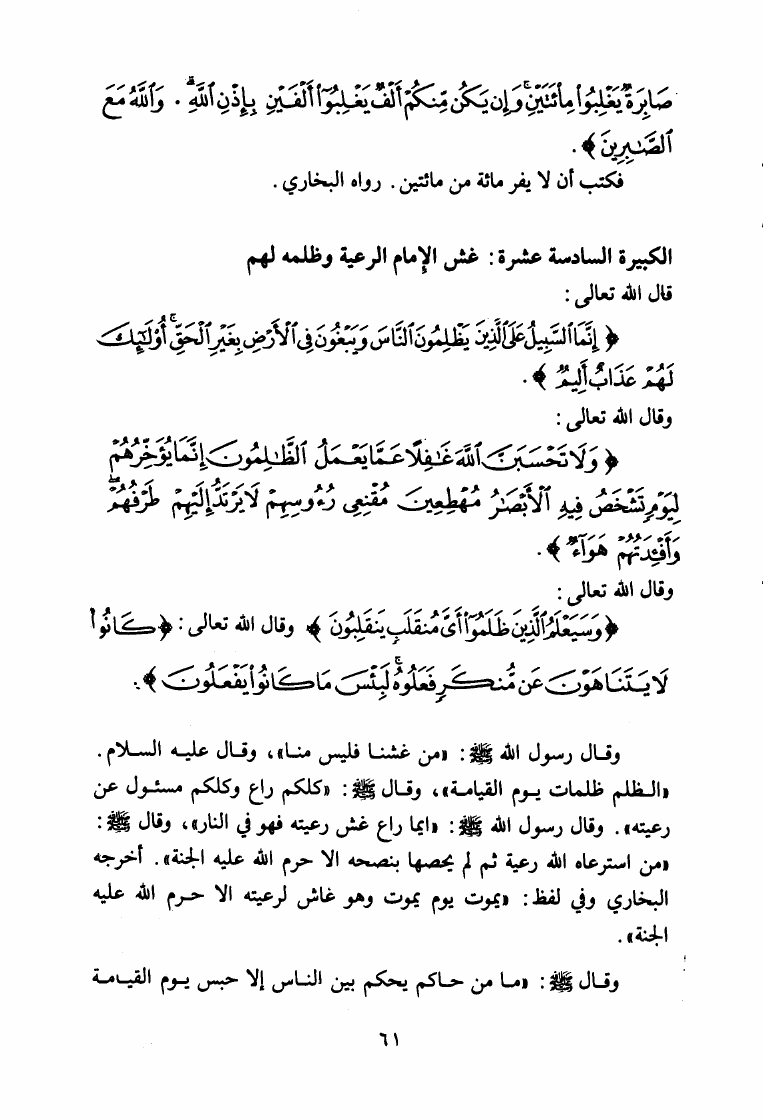 صَابِرَةٌ يَغْلِبُوا۟ مِا۟ئَتَيْنِ ۚ وَإِن يَكُن مِّنكُمْ أَلْفٌ يَغْلِبُوٓا۟ أَلْفَيْنِ بِإِذْنِ ٱللَّهِ ۗ . وَٱللَّهُ مَعَ
ٱلصَّٰبِرِينَ ﴾ .
فكتب أن لا يفر مائة من مائتين . رواه البخاري .
الكبيرة السادسة عشرة : غش الإمام الرعية وظلمه لهم
قال الله تعالى :
﴿ إِنَّمَا ٱلسَّبِيلُ عَلَى ٱلَّذِينَ يَظْلِمُونَ ٱلنَّاسَ وَيَبْغُونَ فِى ٱلْأَرْضِ بِغَيْرِ ٱلْحَقِّ ۚ أُو۟لَٰٓئِكَ
لَهُمْ عَذَابٌ أَلِيمٌ ﴾ .
وقال الله تعالى :
﴿ وَلَا تَحْسَبَنَّ ٱللَّهَ غَٰفِلًا عَمَّا يَعْمَلُ ٱلظَّٰلِمُونَ إِنَّمَا يُؤَخِّرُهُمْ
لِيَوْمٍ تَشْخَصُ فِيهِ ٱلْأَبْصَٰرُ مُهْطِعِينَ مُقْنِعِى رُءُوسِهِمْ لَا يَرْتَدُّ إِلَيْهِمْ طَرْفُهُمْ ۖ
وَأَفْـِٔدَتُهُمْ هَوَآءٌ ﴾ .
وقال الله تعالى :
﴿ وَسَيَعْلَمُ ٱلَّذِينَ ظَلَمُوٓا۟ أَىَّ مُنقَلَبٍ يَنقَلِبُونَ ﴾ وقال الله تعالى : ﴿ كَانُوا۟
لَا يَتَنَاهَوْنَ عَن مُّنكَرٍ فَعَلُوهُ ۚ لَبِئْسَ مَا كَانُوا۟ يَفْعَلُونَ ﴾ .
وقال رسول الله ﷺ : «من غشنا فليس منا» ، وقال عليه السلام .
«الظلم ظلمات يوم القيامة» ، وقال ﷺ : «كلكم راع وكلكم مسئول عن
رعيته» . وقال رسول الله ﷺ : «ايما راع غش رعيته فهو في النار» ، وقال ﷺ :
«من استرعاه الله رعية ثم لم يحصها بنصحه الا حرم الله عليه الجنة» . أخرجه
البخاري وفي لفظ : «يموت يوم يموت وهو غاش لرعيته الا حرم الله عليه
الجنة» .
وقال ﷺ : «ما من حاكم يحكم بين الناس إلا حبس يوم القيامة
٦١